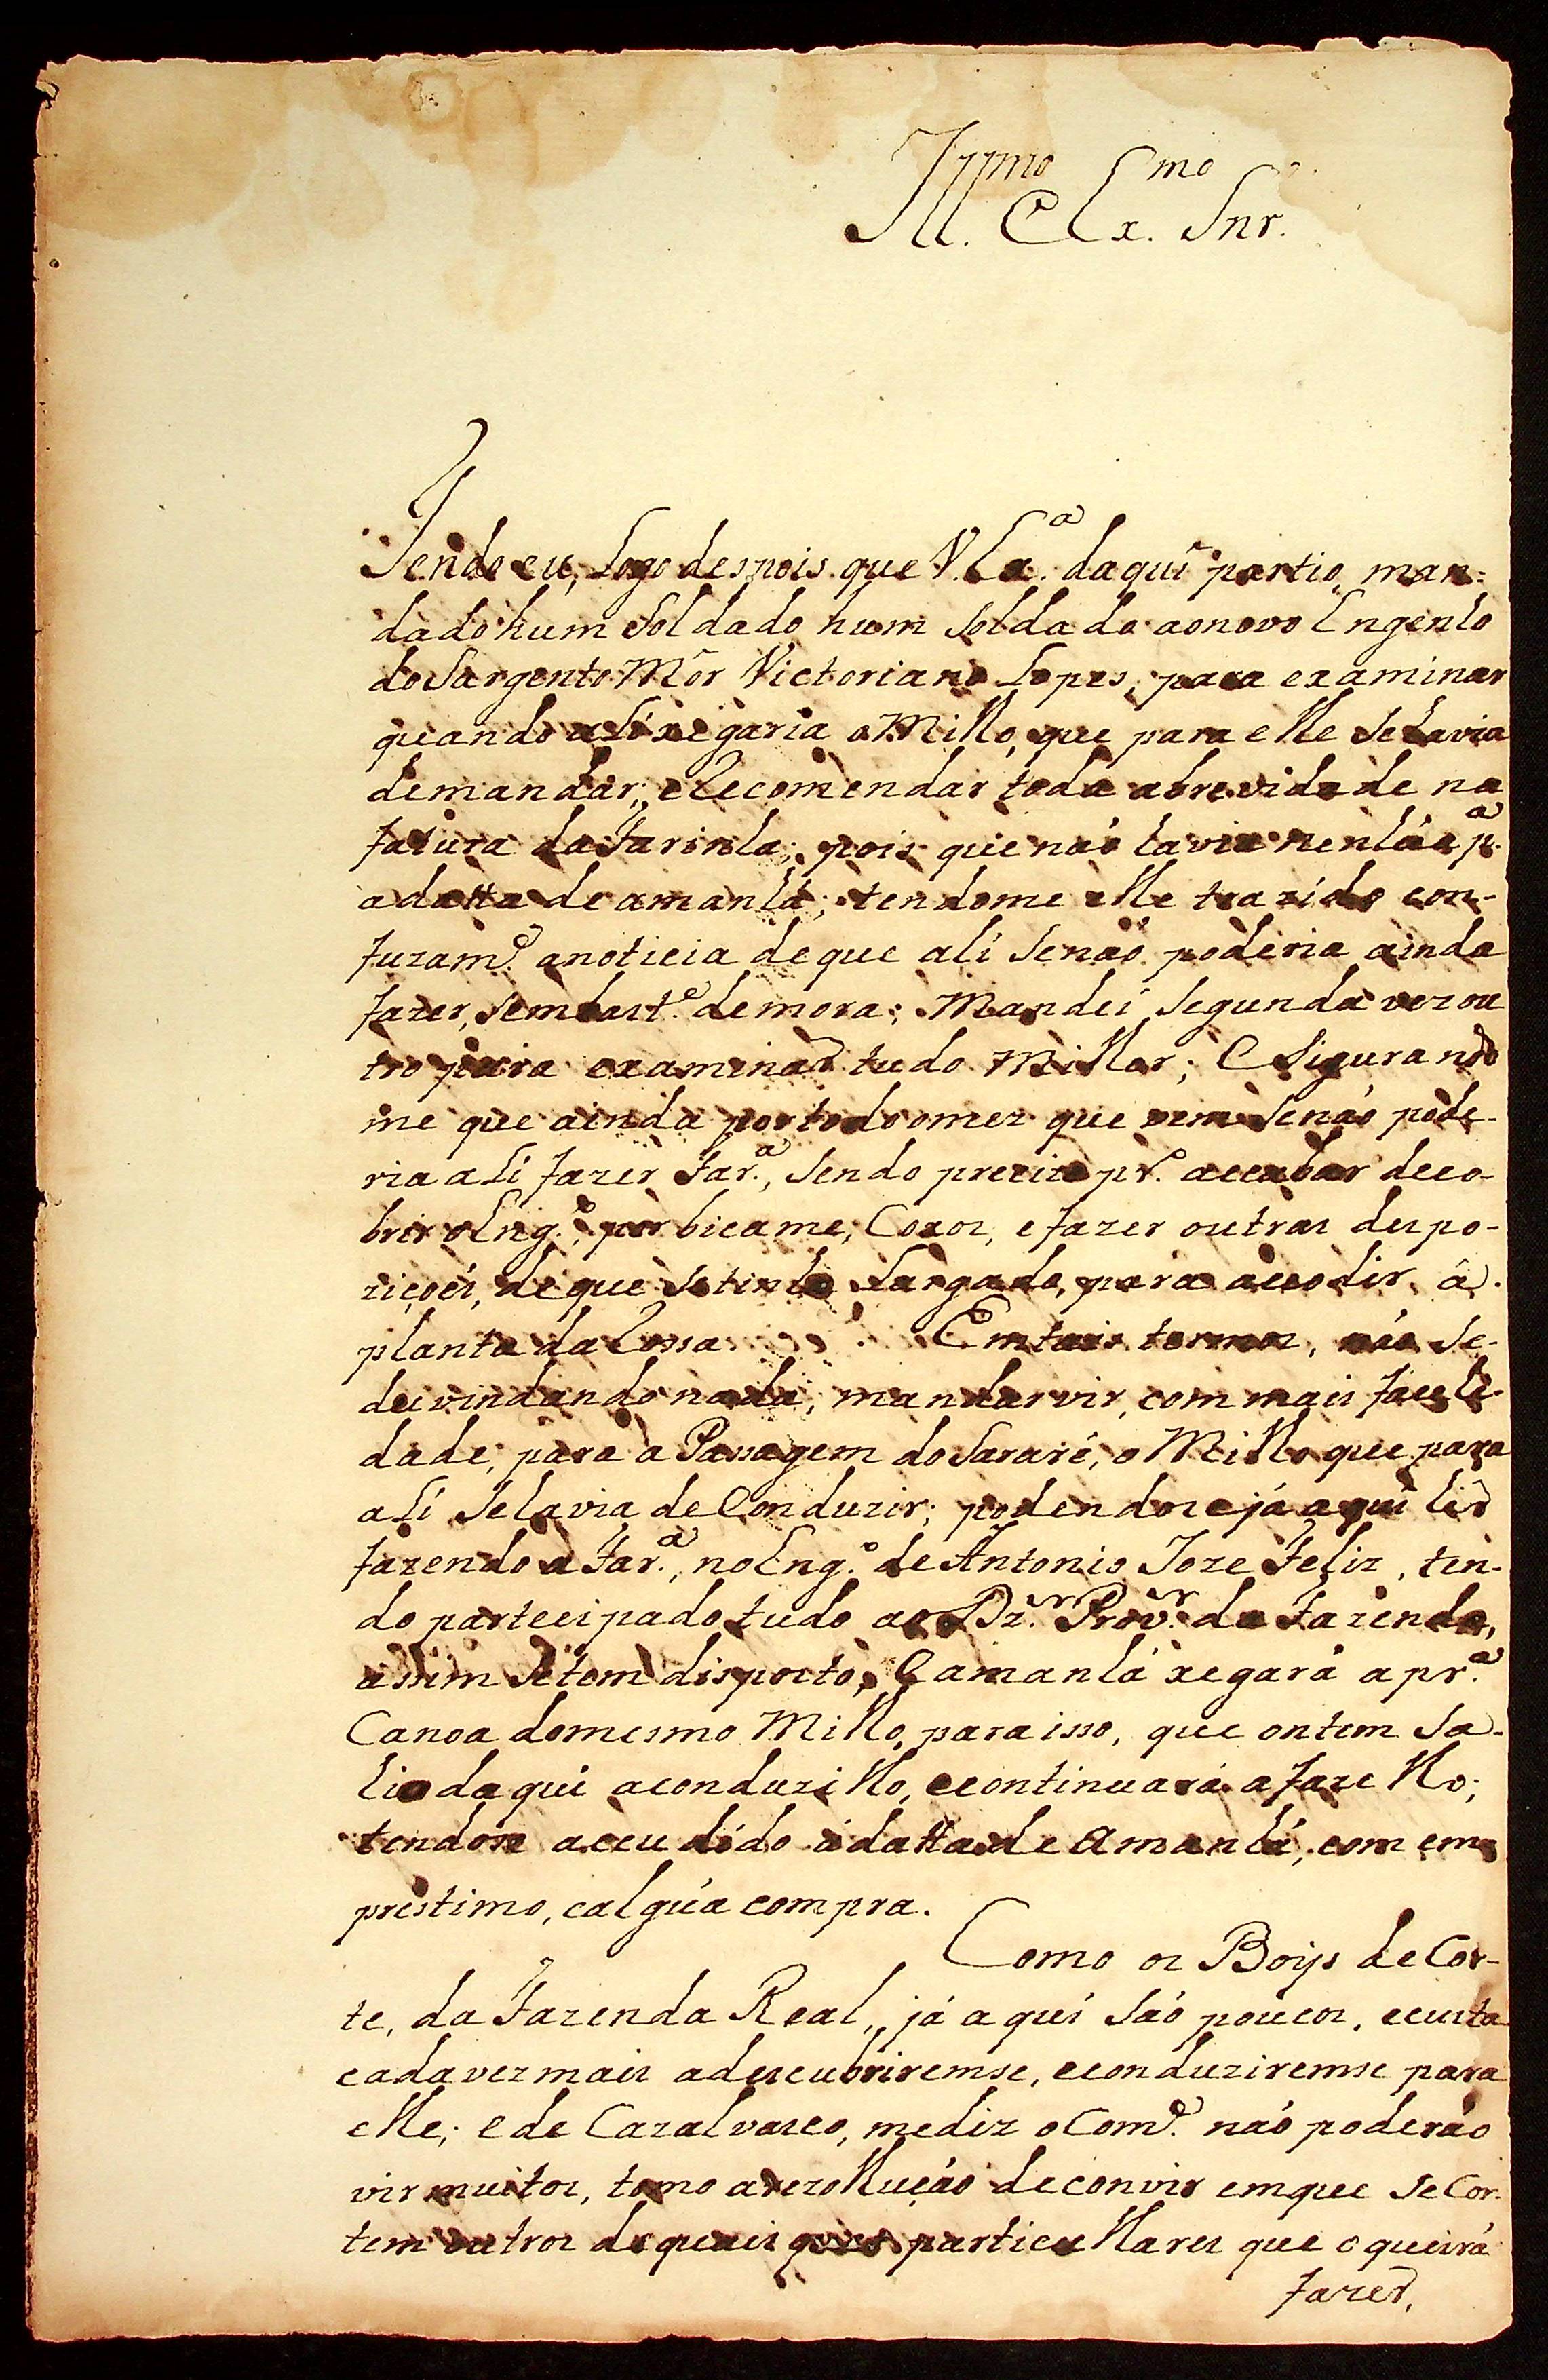 Ill.mo e Ex.mo Snr.
Tendo eu, logo despois que V. Ex.a daqui partio, man=
dado hum Soldado hum Soldado ao novo Engenho
do Sargento Mór Victoriano Lopes, para examinar
quando ali xegaria o Milho, que para elle se havia
de mandar; e Recomendar toda abrevidade na
fatura da Farinha; pois que naó havia nenhúa p.a
a datta de amanhã; tendome elle trazido con-
fuzam.e a noticia de que alí se naó poderia ainda
fazer, sem bast.e demora; Mandei segunda vez ou
tro para examinar tudo Milhor; E Sigurando
me que ainda por todo o mez que vem se naó pode-
ria ali fazer Far.a, sendo precizo pr.o accabar de co-
brir o Eng.o, por bicame, Coxos, e fazer outras despo-
ziçoés, de que se tinha Largado, para accodir â
planta da Rossa. Em tais termos, naó se
desvindando nada, mandar vir, com mais facili-
dade, para a Passagem do Sararé, o Milho que para
alí se havia de Conduzir; podendose já aqui hir
fazendo a Far.a, no Eng.o de Antonio Joze Feliz, ten-
do partecipado tudo ao Dz.or Prov.or da Fazenda,
assim se tem disposto, E amanhã xegará a pr.a
Canoa do mesmo Milho, para isso, que ontem sa-
hio daqui a conduzillo, e continuará a fazello;
tendose accudido á datta de Amanhã, com em
prestimo, e algúa compra.
Como os Boys de Cor-
te, da Fazenda Real, já aquí saó poucos, e custa
cada vez mais a descubriremse, e conduziremse para
elle; e de Cazalvasco, mediz o Com.e naó poderáo
vir muitos, tomo a rezolluçáo de convir em que se Cor-
tem outros de quais particullares que o queirá
fazer,